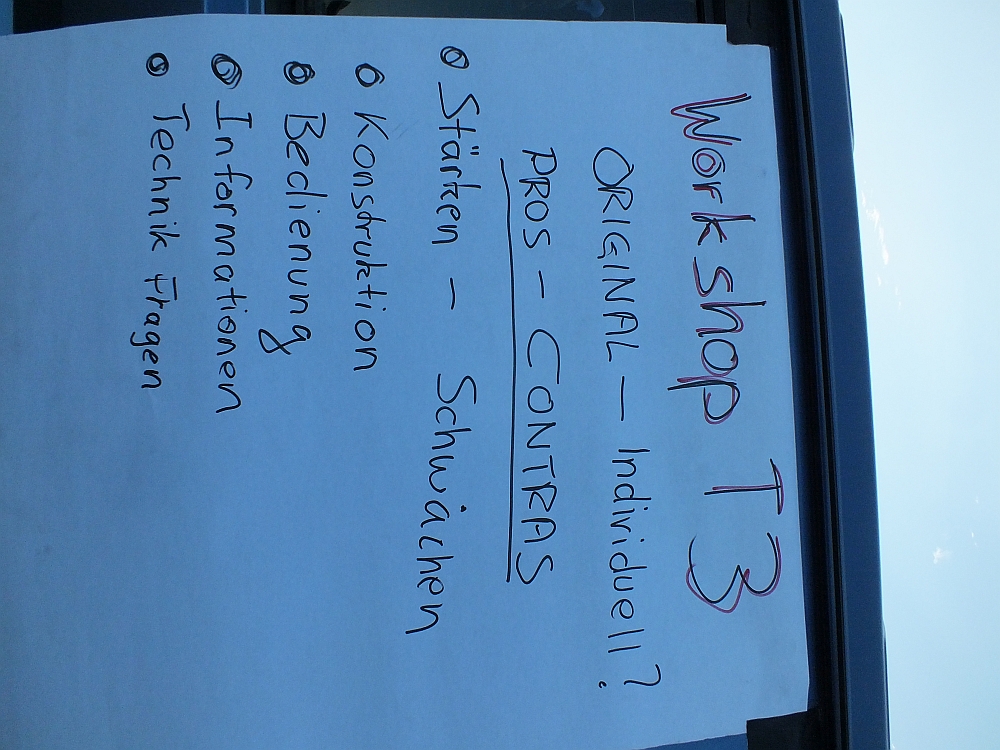 Workshop T3
ORIGINAL – Individuell?
PROS – CONTRAS
Stärken – Schwächen
Konstruktion
Bedienung
Informationen
Technik Fragen